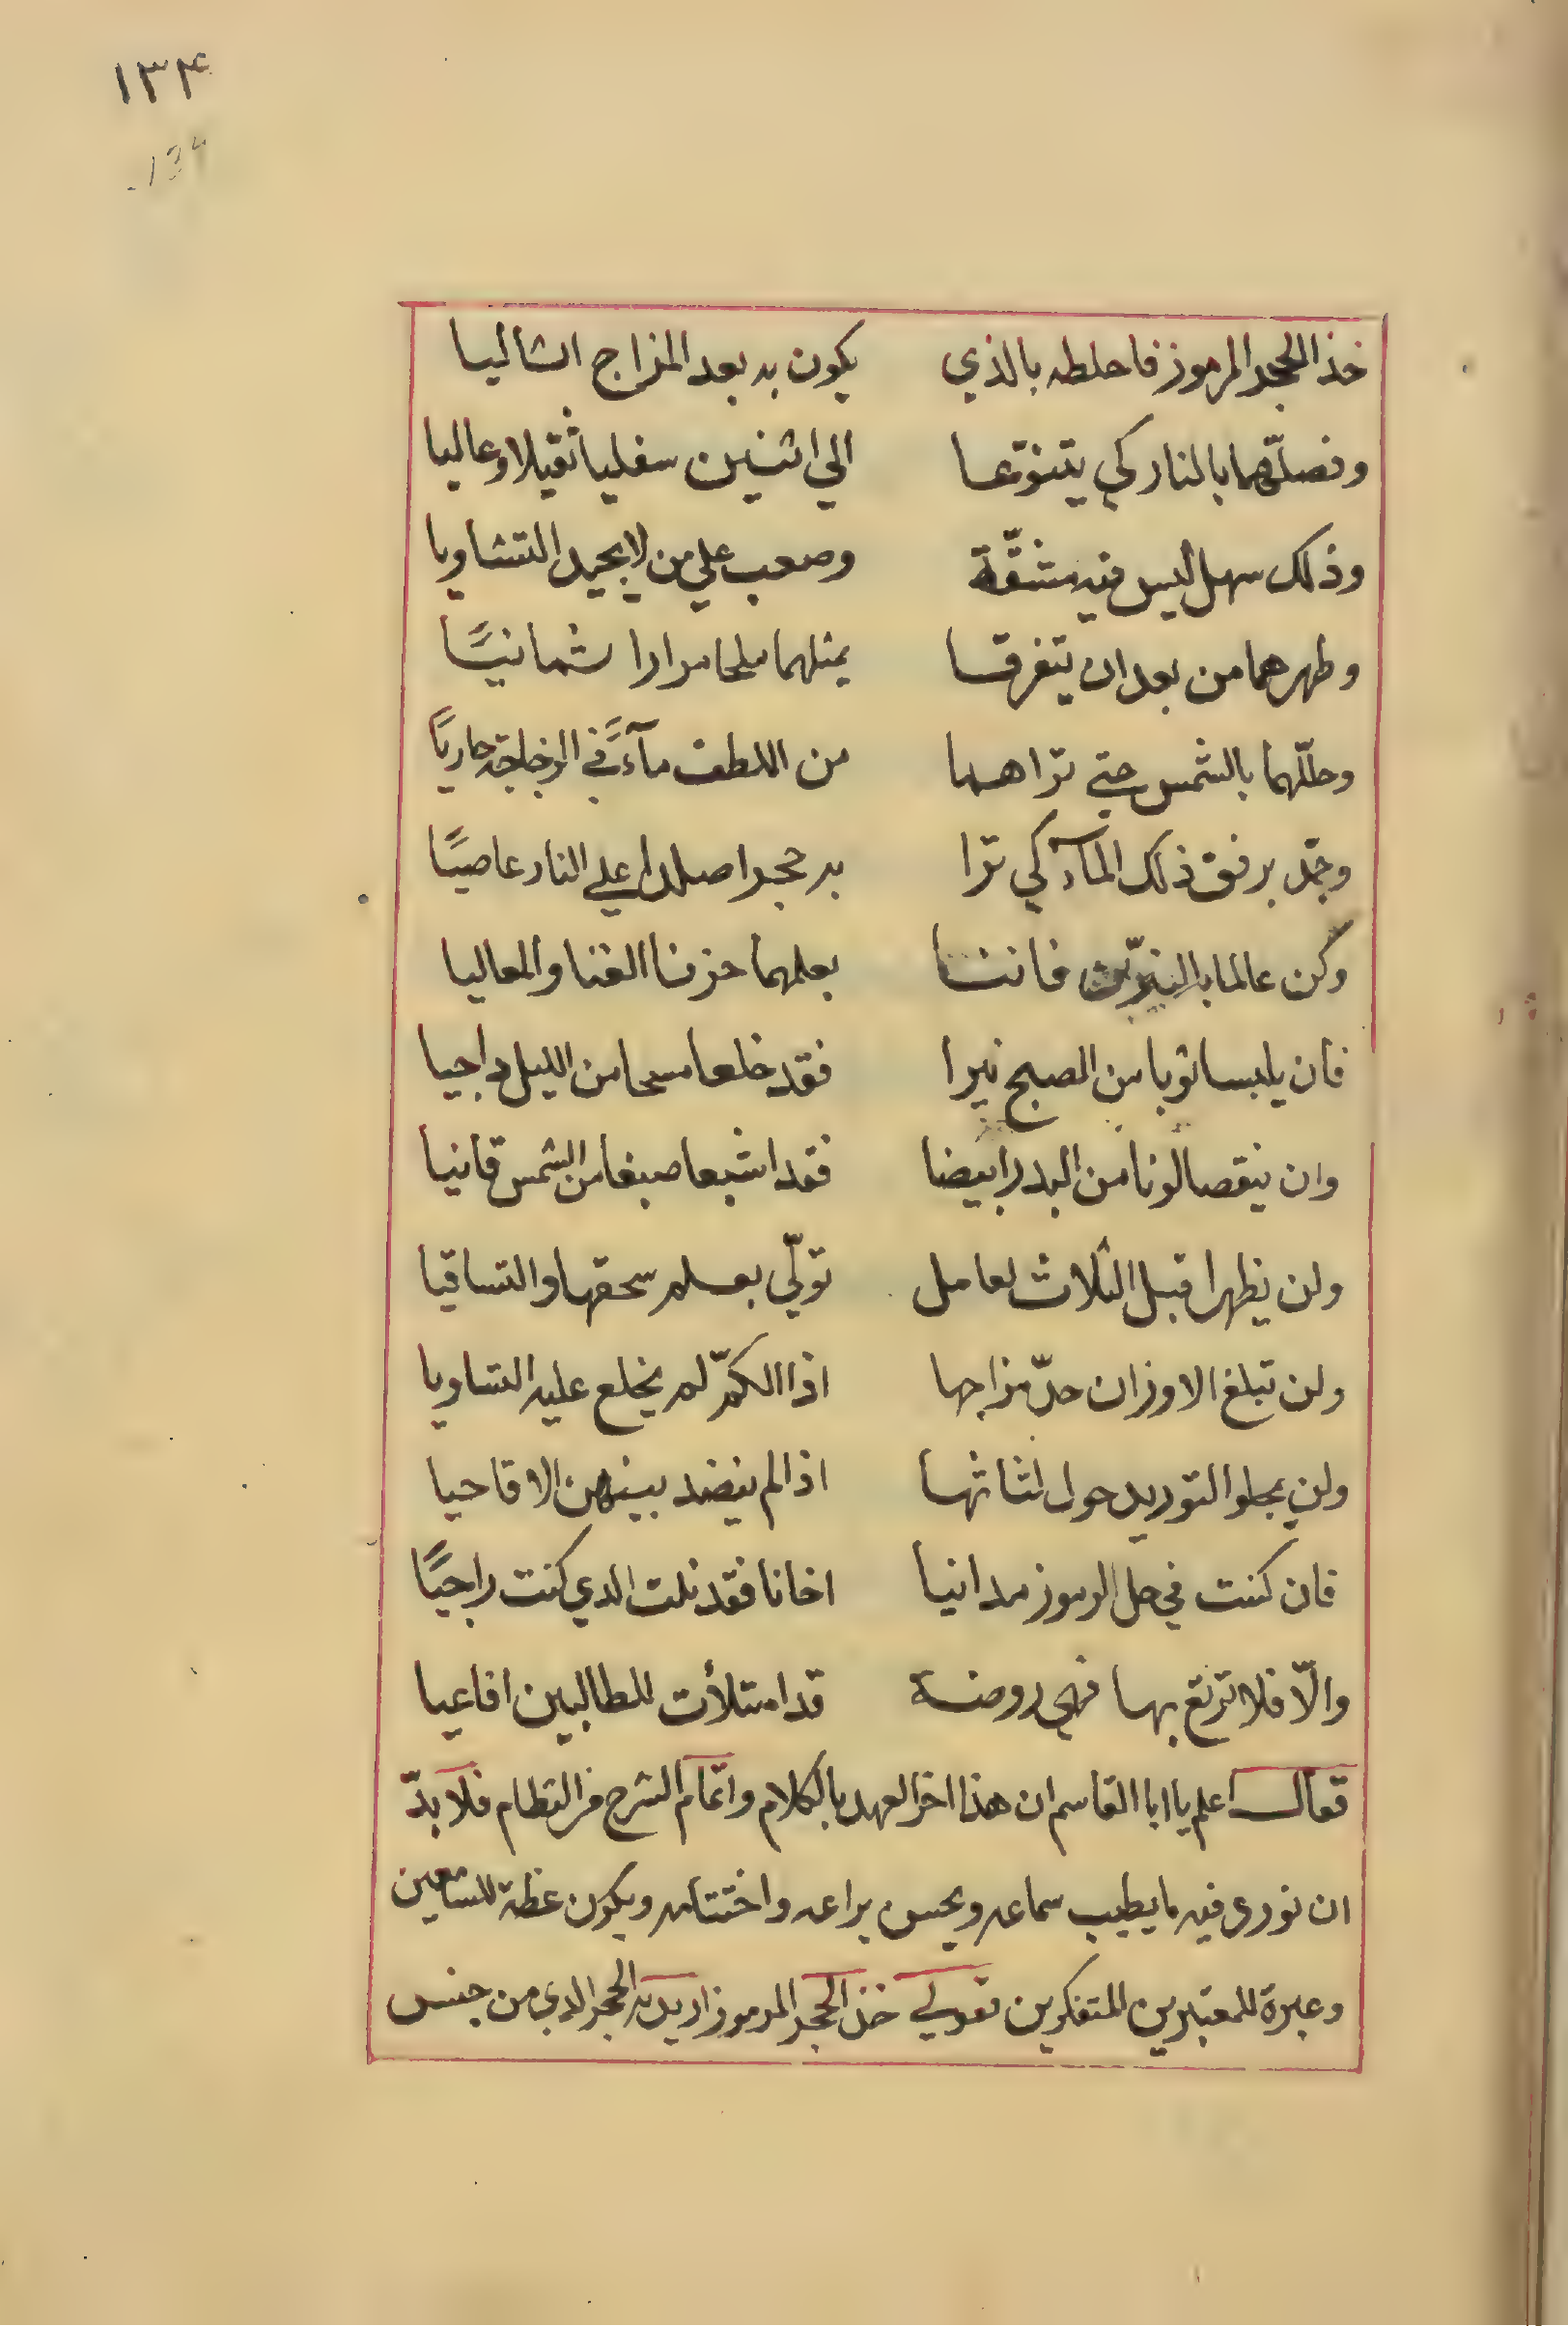 ١٣٤
134
خذ الحجر المرموز فاخلطه بالذي يكون به بعد المزاج
وفصلهما بالنار كي يتنوعا الي اثنين سفليا ثقيلا وعاليا
وذلك سهل ليس فيه مشقّة وصعب علي من لا يجيد التشاويا
وطهرهما من بعد ان يتفرقا بمثلهما ملحا مرارا ثمانيًا
وحلّلهما بالشمس حتي تراهما من اللطف مآءً في الزجاجة جاريًا
وجمّد برفق ذلك المآء كي ترا به حجرا صلدا علي النار عاصيًا
وكن عالما بالنيّرين فاننا بعلمهما حزنا الغنا والمعاليا
فان يلبسا ثوبا من الصبح نيرا فقد خلعا مسحا من الليل داجيا
وان ينقصا لونا من البدر ابيضا فقد اشبعا صبغا من الشمس قانيا
ولن يظهرا قبل الثلاث لعامل تولّي بعلم سحقها والتساقيا
ولن تبلغ الاوزان حدّ مزاجها اذا الكمّ لم يخلع عليه التساويا
ولن يجلو التوريد حول لثاثها اذا لم ينضد بينهن الاقاحيا
فان كنت في حل الرموز مدانيا اخانا فقد نلت الدي كنت راجيًا
والّا فلا ترتع بها فهي روضة قد امتلأت للطالبين افاعيا
فقال اعلم يا ابا القاسم ان هذا اخر العهد بالكلام واتمام الشرح من النظام فلا بدّ
ان نورى فيه ما يطيب سماعه ويحسن براعه واختتامه ويكون عظة للسامعين
وعبرة للمعتبرين المتفكرين فقولي خذ الحجر المرموز اريد به الحجر الدي من جنس